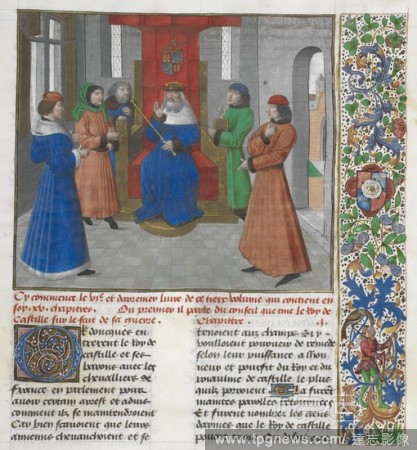 Cy commence le vjᵉ et darrenier livre de ce tiers volume qui contient en
soy xxv chapitres. Ou premier il parle du conseil que tint le Roy de
Castille sur le fait de sa guerre. Chapitre j.
doncques en
trerent le Roy de
castille et ses
barons avec les
chevalliers de
France en parlement pour
avoir certain arrest et advis
comment ilz se maintendroient
Car bien scavoient que leurs
ennemis chevauchoient et se
tenoient aux champs Si y
vouloient pourveoir de remede
selon leur puissance a lhon
neur et prouffit du Roy et du
royaulme de castille le plus
quilz porroient La furent
maintes parolles retournees
Et furent nombrez les gens
darmes que le Roy de castille
www.tpgnews.com / 達志影像